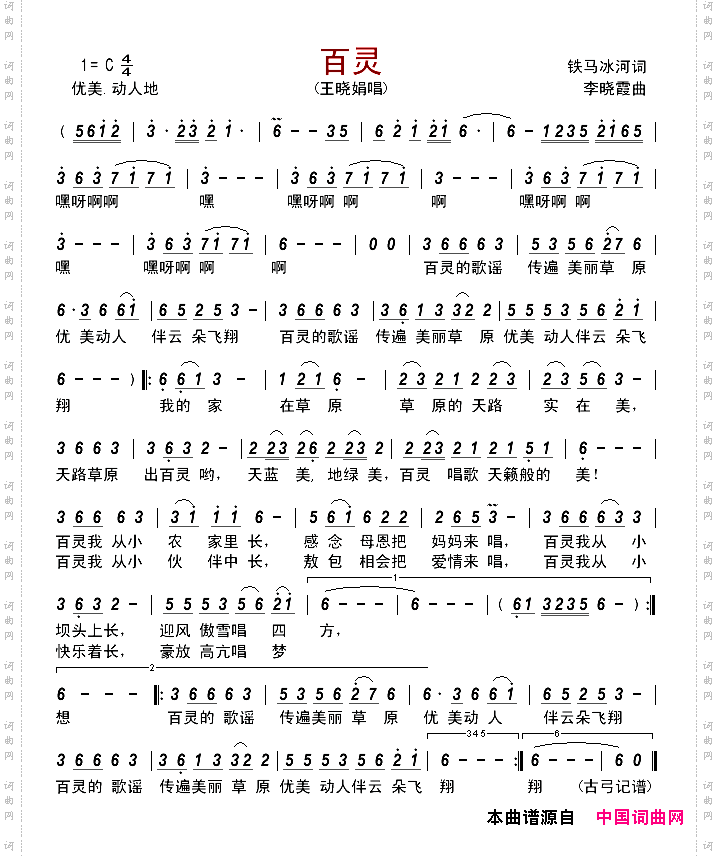 百灵
1=C 4/4
铁马冰河词
优美.动人地
(王晓娟唱)
李晓霞曲
( 5 6 1 2 | 3 · 2 3 2 1 · | 6 - - 3 5 | 6 2 1 2 1 6 · | 6 - 1 2 3 5 2 1 6 5 |
3 6 3 7 1 7 1 | 3 - - - | 3 6 3 7 1 7 1 | 3 - - - | 3 6 3 7 1 7 1 |
嘿呀啊啊 嘿 嘿呀啊 啊 啊 嘿呀啊 啊
3 - - - | 3 6 3 7 1 7 1 | 6 - - - | 0 0 3 6 6 6 3 | 5 3 5 6 2 7 6 |
嘿 嘿呀啊 啊 啊 百灵的歌谣 传遍 美丽草 原
6 · 3 6 6 1 | 6 5 2 5 3 - | 3 6 6 6 3 | 3 6 1 3 3 2 2 | 5 5 5 3 5 6 2 1 |
优 美动人 伴云 朵飞翔 百灵的歌谣 传遍 美丽草 原 优美 动人伴云 朵飞
6 - - - ) ‖: 6 6 1 3 - | 1 2 1 6 - | 2 3 2 1 2 2 3 | 2 3 5 6 3 - |
翔 我的 家 在草 原 草 原的 天路 实 在 美,
3 6 6 3 | 3 6 3 2 - | 2 2 3 2 6 2 2 3 | 2 2 3 2 1 2 1 5 1 | 6 - - - |
天路草原 出百灵 哟, 天蓝 美, 地绿 美, 百灵 唱歌 天籁般的 美!
3 6 6 6 3 | 3 1 1 1 6 - | 5 6 1 6 2 2 | 2 6 5 3 - | 3 6 6 6 3 3 |
百灵我 从小 农 家里 长, 感 念 母恩把 妈妈来 唱, 百灵我从 小
百灵我 从小 伙 伴中 长, 敖 包 相会把 爱情来 唱, 百灵我从 小
1
3 6 3 2 - | 5 5 5 3 5 6 2 1 | 6 - - - | 6 - - - | ( 6 1 3 2 3 5 6 - ) :‖
坝头上长, 迎风 傲雪唱 四 方,
快乐着长, 豪放 高亢唱 梦
2
6 - - - ‖: 3 6 6 6 3 | 5 3 5 6 2 7 6 | 6 · 3 6 6 1 | 6 5 2 5 3 - |
想 百灵的 歌谣 传遍美丽 草 原 优 美动 人 伴云朵飞翔
345 6
3 6 6 6 3 | 3 6 1 3 3 2 2 | 5 5 5 3 5 6 2 1 | 6 - - - :‖ 6 - - - | 6 0 ‖
百灵的 歌谣 传遍美丽 草 原 优美 动人伴云 朵飞 翔 翔 (古弓记谱)
本曲谱源自 中国词曲网